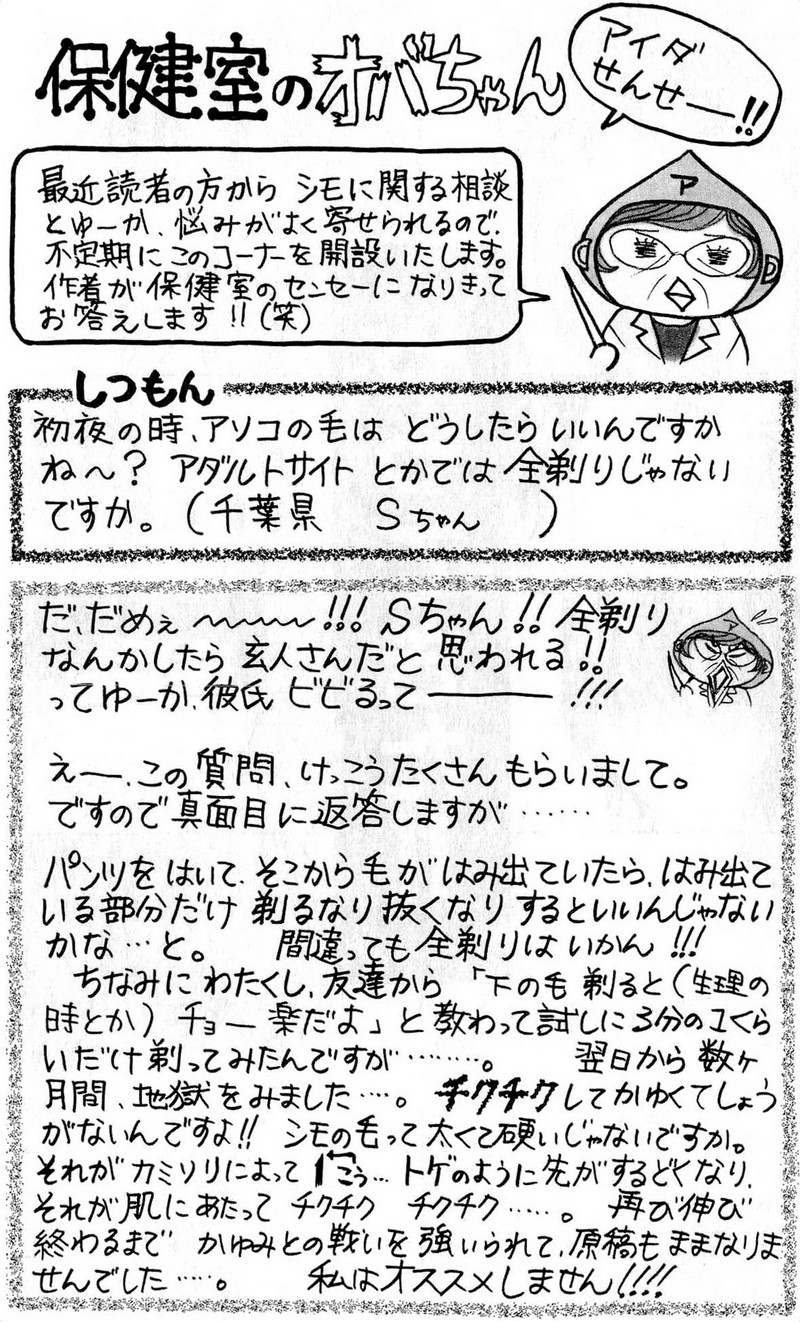 保健室のオバちゃん
アイダ
せんせー!!
ア
最近読者の方から シモに関する相談
とゆーか、悩みがよく寄せられるので、
不定期にこのコーナーを開設いたします。
作者が保健室のセンセーになりきって
お答えします!!(笑)
しつもん
初夜の時、アソコの毛は どうしたらいいんですか
ね〜? アダルトサイト とかでは 全剃りじゃない
ですか。(千葉県 Sちゃん )
だ、だめぇ〜〜〜〜!!! Sちゃん!! 全剃り
なんかしたら 玄人さんだと 思われる!!
ってゆーか、彼氏 ビビるって―――!!!
えー、この質問、けっこうたくさん もらいまして。
ですので真面目に返答しますが……
パンツをはいて、そこから毛がはみ出ていたら、はみ出て
いる部分だけ 剃るなり抜くなり するといいんじゃない
かな…と。 間違っても全剃りは いかん!!!
ちなみに わたくし、友達から 「下の毛 剃ると(生理の
時とか) チョー 楽だよ」と 教わって試しに3分の1くら
いだけ 剃ってみたんですが………。 翌日から 数ヶ
月間、地獄をみました…。 チクチクしてかゆくてしょう
がないんですよ!! シモの毛って 太くて硬いじゃないですか。
それが カミソリによって こう… トゲのように先がするどくなり、
それが肌にあたって チクチク チクチク……。 再び伸び
終わるまで かゆみとの戦いを 強いられて、原稿も ままなりま
せんでした……。 私はオススメしません!!!!